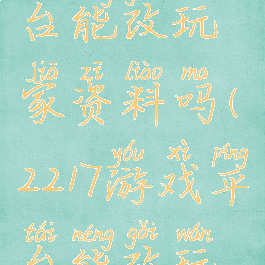 台能改玩
jiā zī liào ma
家资料吗(
yóu xì píng
2217游戏平
tái néng gǎi wán
台能改玩